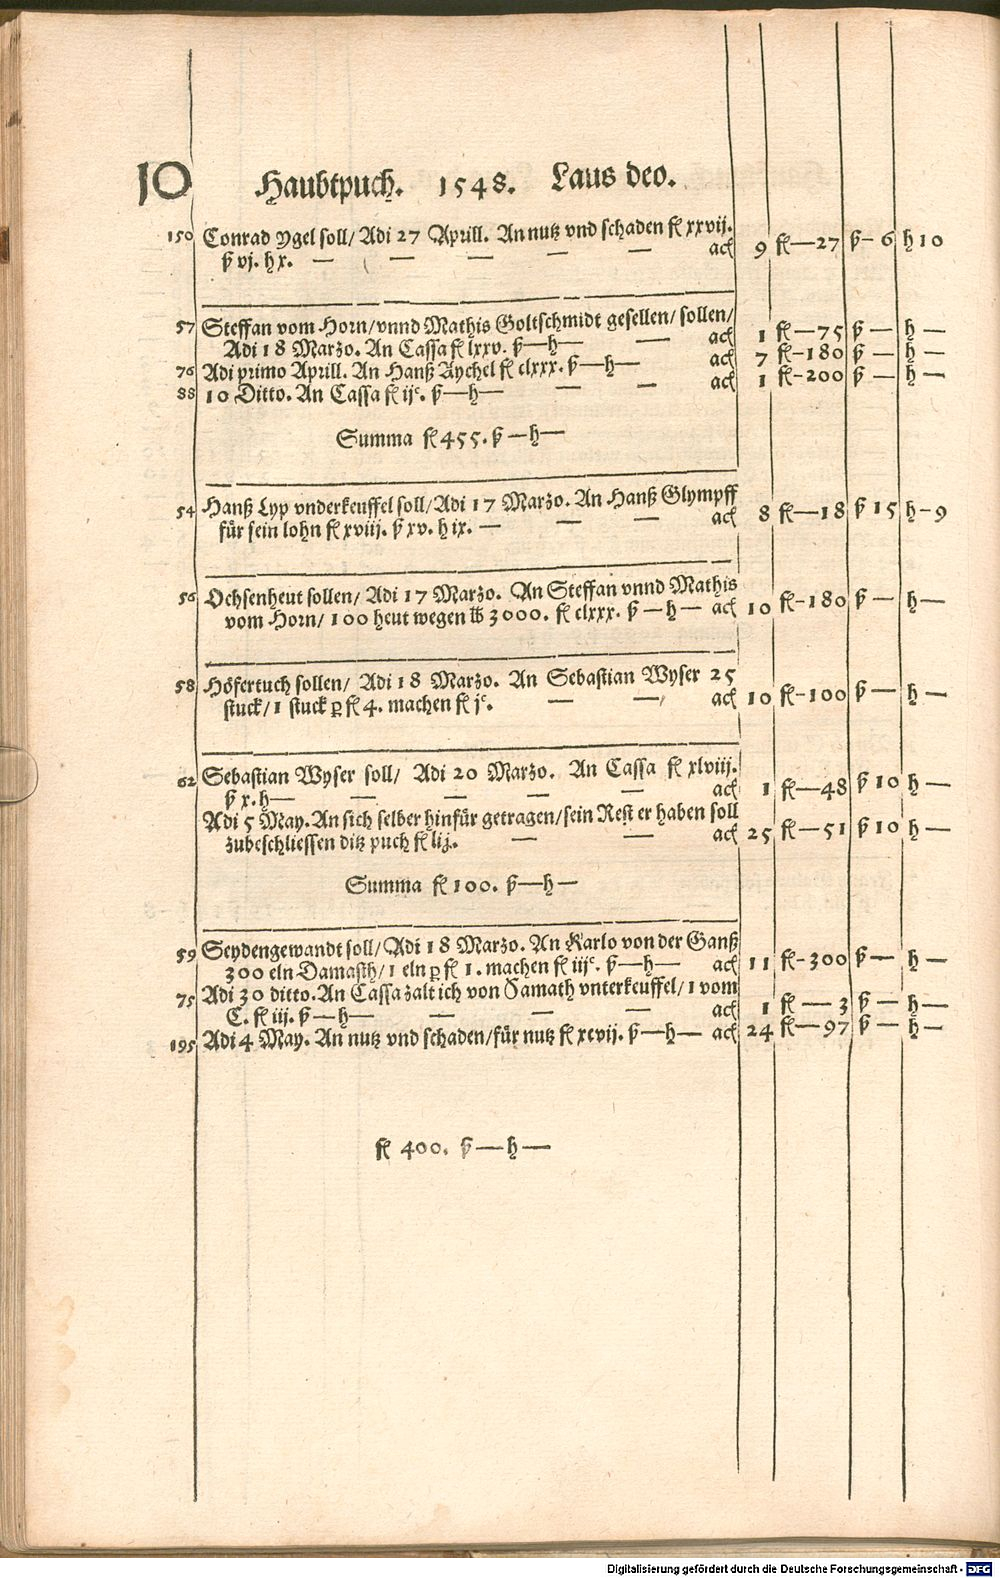 10 Haubtpuch. 1548. Laus deo.
150 Conrad ygel soll/ Adi 27 Aprill. An nutz vnd schaden fl xxvij.
ß vj. h x. — — — — — ac 9 fl—27 ß–6 h10
57 Steffan vom Horn/vnnd Mathis Goltschmidt gesellen/sollen/
Adi 18 Marzo. An Cassa fl lxxv. ß—h— — ac 1 fl—75 ß— h—
76 Adi primo Aprill. An Hanß Aychel fl clxxx. ß—h— ac 7 fl–180 ß— h—
88 10 Ditto. An Cassa fl ijc. ß—h— — — ac 1 fl–200 ß— h—
Summa fl 455. ß—h—
54 Hanß Lyp vnderkeuffel soll/Adi 17 Marzo. An Hanß Glympff
für sein lohn fl xviij. ß xv. h ix. — — — ac 8 fl—18 ß 15 h–9
56 Ochsenheut sollen/ Adi 17 Marzo. An Steffan vnnd Mathis
vom Horn/ 100 heut wegen lb 3000. fl clxxx. ß—h— ac 10 fl–180 ß— h—
58 Höfertuch sollen/ Adi 18 Marzo. An Sebastian Wyser 25
stuck/1 stuck p fl 4. machen fl jc. — — ac 10 fl–100 ß— h—
62 Sebastian Wyser soll/ Adi 20 Marzo. An Cassa fl xlviij.
ß x. h— — — — — ac 1 fl—48 ß 10 h—
Adi 5 May. An sich selber hinfür getragen/sein Rest er haben soll
zubeschliessen ditz puch fl liz. — — ac 25 fl—51 ß 10 h—
Summa fl 100. ß—h—
59 Seydengewandt soll/ Adi 18 Marzo. An Karlo von der Ganß
300 eln Damasth/1 eln p fl 1. machen fl iijc. ß—h— ac 11 fl–300 ß— h—
75 Adi 30 ditto. An Cassa zalt ich von Samath vnterkeuffel/1 vom
C. fl iij. ß—h— — — — ac 1 fl—3 ß— h—
195 Adi 4 May. An nutz vnd schaden/für nutz fl xcvij. ß—h— ac 24 fl—97 ß— h—
fl 400. ß—h—
Digitalisierung gefördert durch die Deutsche Forschungsgemeinschaft - DFG